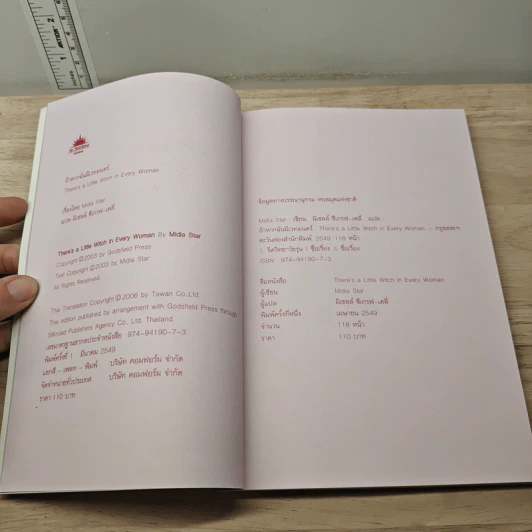 ถ้าหากฉันมีเวทมนตร์
There's a Little Witch in Every Woman
เรื่องโดย Midia Star
แปล มิเชลล์ ชีเกรฟ-เดลี่
There's a Little Witch in Every Woman By Midia Star
Copyright ©2003 by Godsfield Press
Text Copyright ©2003 by Midia Star
All Rights Reserved.
Thai Translation Copyright ©2006 by Tawan Co.,Ltd.
Thai edition published by arrangement with Godsfield Press through
Silkroad Publishers Agency Co., Ltd. Thailand.
เลขมาตรฐานสากลประจำหนังสือ 974-94190-7-3
พิมพ์ครั้งที่ 1 มีนาคม 2549
แยกสี - เพลท - พิมพ์ บริษัท คอมฟอร์ม จำกัด
จัดจำหน่ายทั่วประเทศ บริษัท คอมฟอร์ม จำกัด
ราคา 110 บาท
ข้อมูลทางบรรณานุกรม หอสมุดแห่งชาติ
Midia Star เขียน มิเชลล์ ชีเกรฟ-เดลี่ แปล
ถ้าหากฉันมีเวทมนตร์. There's a Little Witch in Every Woman. - กรุงเทพฯ:
ตะวันส่องสำนักพิมพ์, 2549. 118 หน้า
1. จิตวิทยาวัยรุ่น 1. ชื่อเรื่อง ॥. ชื่อเรื่อง
ISBN 974-94190-7-3
ชื่อหนังสือ There's a Little Witch in Every Woman
ผู้เขียน Midia Star
ผู้แปล มิเชลล์ ชีเกรฟ-เดลี่
พิมพ์ครั้งที่หนึ่ง เมษายน 2549
จำนวน 118 หน้า
ราคา 110 บาท